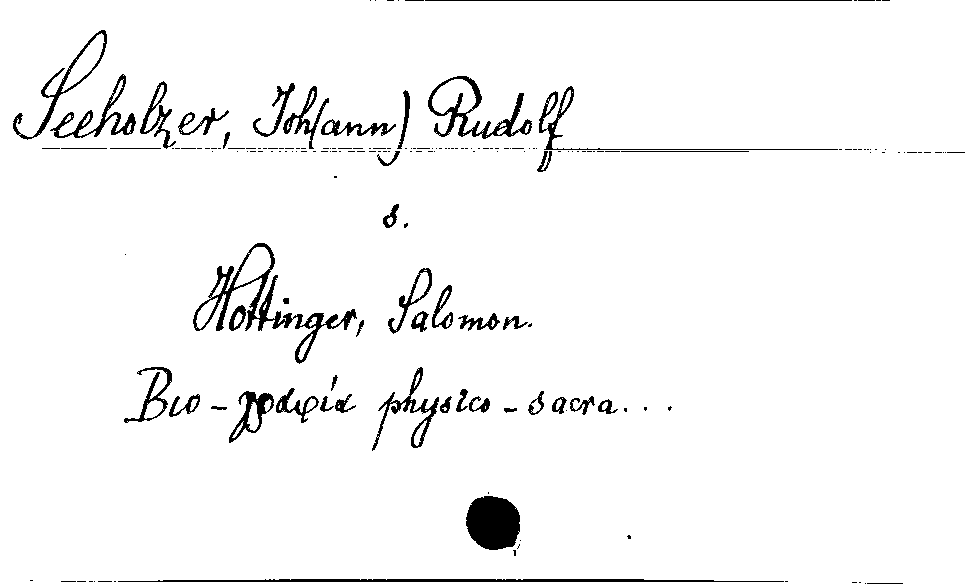 Seeholzer, Joh(ann) Rudolf
s.
Hottinger, Salomon.
Βιο-γραφία physico-sacra...